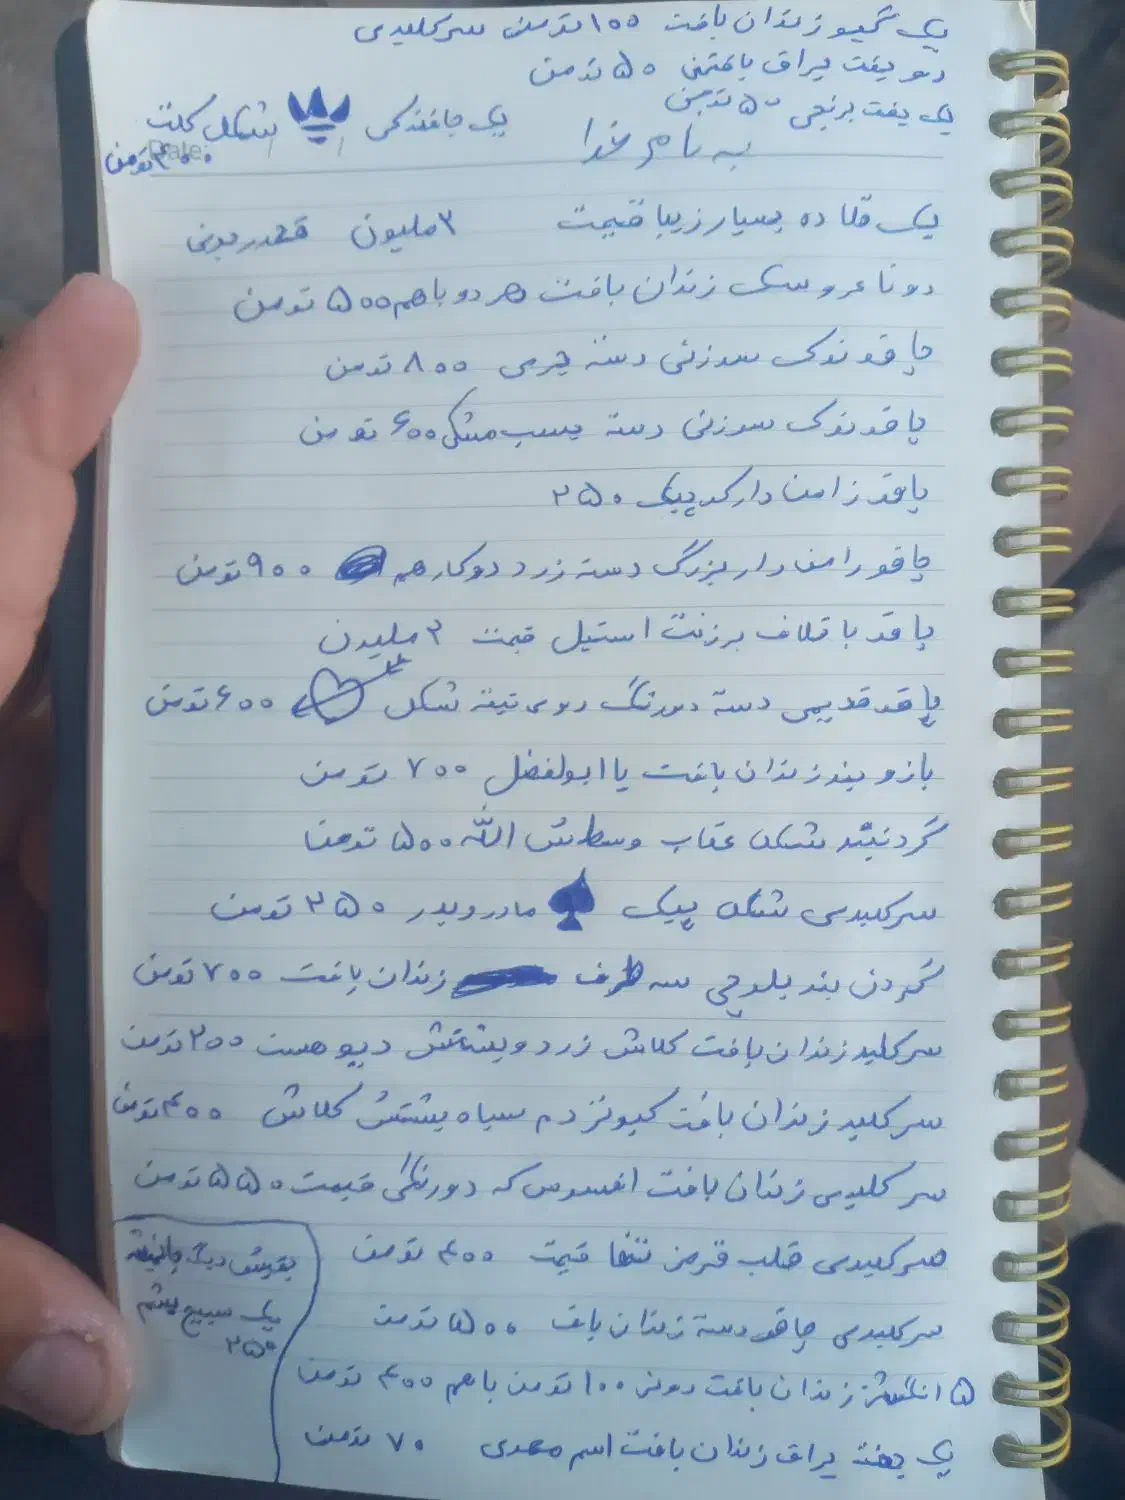 یک گیو زندان بافت ۱۰۰ تومن سرکلیدی
دو یفت یراق بافتنی ۵۰ تومن
یک یفت برنجی ۵۰ تومن
یک جافندکی شکل کلت
۴۰۰ تومن
به نام خدا
یک قلاده بسیار زیبا قیمت ۳ ملیون
دوتا عروسک زندان بافت هر دو باهم ۵۰۰ تومن
چاقو نوک سوزنی دسته چرمی ۸۰۰ تومن
چاقو نوک سوزنی دسته چسب مشکی ۶۰۰ تومن
چاقو زامن دار کد پیک ۲۵۰
چاقو زامن دار بزرگ دسته زرد دوکار هم ۹۰۰ تومن
چاقو با قلاف برزنت استیل قیمت ۲ ملیون
چاقو قدیمی دسته دورنگ روی تیغه شکل ۶۰۰ تومن
بازوبند زندان بافت یا ابولفضل ۷۰۰ تومن
گردنبند شکل عقاب وسطش الله ۵۰۰ تومن
سرکلیدی شکل پیک مادر و پدر ۳۵۰ تومن
گردن بند بلوچی سه طرف زندان بافت ۷۰۰ تومن
سرکلید زندان بافت کلاش زرد و پشتش دیو هست ۲۰۰ تومن
سرکلید زندان بافت کیونز دم سیاه پشتش کلاش ۴۰۰ تومن
سرکلیدی زندان بافت افسوس که دورنگی قیمت ۵۵۰ تومن
سرکلیدی قلب قرمز تنها قیمت ۴۰۰ تومن
سرکلیدی چاقو دسته زندان باف ۵۰۰ تومن
۵ انگشتر زندان بافت دونز ۱۰۰ تومن باهم ۴۰۰ تومن
یک جفت یراق زندان بافت اسم مهدی ۷۰ تومن
یک سبیح یشم
۲۵۰